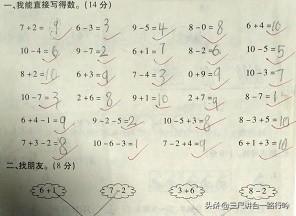 一、我能直接写得数。(14分)
7+2=9 6-3=3 9-5=4 8-0=8 6+4=10
10-4=6 9-7=2 6+1=7 8-2=6 10-5=5
8+2=10 6+3=9 7-4=3 0+9=9 10-3=7
10-7=3 2+6=8 9+1=10 2+7=9 8-7=1
6+4-1=9 9-2-5=2 10-5+3=8 8-3+5=10
7+3-2=8 10-6-3=1 7-2+4=9 6+1+
二、找朋友。(8分)
6+1 7-2 3+6 8-2
头条@三尺讲台一路行吟